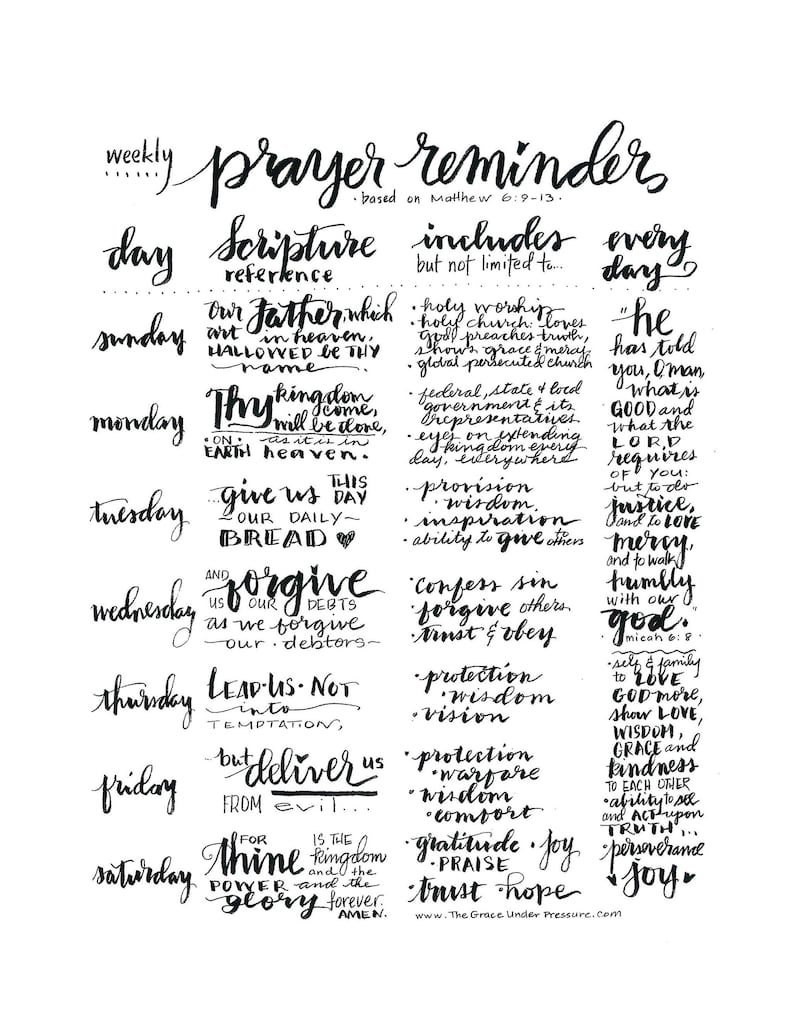 weekly prayer reminders
· based on Matthew 6:9-13 ·
day
scripture
reference
includes
but not limited to...
every
day
sunday
our Father, which
art in heaven,
HALLOWED BE THY
name.
· holy worship
· holy church: loves
God, preaches truth,
shows grace & mercy
· global persecuted church
monday
Thy kingdom
come,
will be done,
· ON · as it is in
EARTH heaven.
· federal, state & local
government & its
representatives
· eyes on extending
kingdom every
day, everywhere
tuesday
...give us THIS
DAY
~ OUR DAILY ~
BREAD ♥
· provision
· wisdom
· inspiration
· ability to give to others
wednesday
AND forgive
US OUR DEBTS
as we forgive
~ our · debtors ~
· confess sin
· forgive others
· trust & obey
thursday
LEAD · US · NOT
into
TEMPTATION,
· protection
· wisdom
· vision
friday
...but deliver us
FROM evil...
· protection
· warfare
· wisdom
· comfort
saturday
FOR thine IS THE
kingdom
and the
POWER and the
glory forever.
AMEN.
· gratitude · joy
· PRAISE
· trust · hope
"he
has told
you, O man,
what is
GOOD and
what the
LORD
requires
OF YOU:
but to do
justice,
and to LOVE
mercy,
and to walk
humbly
with our
god."
· micah 6:8 ·
· self & family
to LOVE
GOD more,
show LOVE,
WISDOM,
GRACE and
kindness
TO EACH OTHER
· ability to see
and ACT upon
TRUTH...
· perseverance
♥ joy ♥
www.TheGraceUnderPressure.com